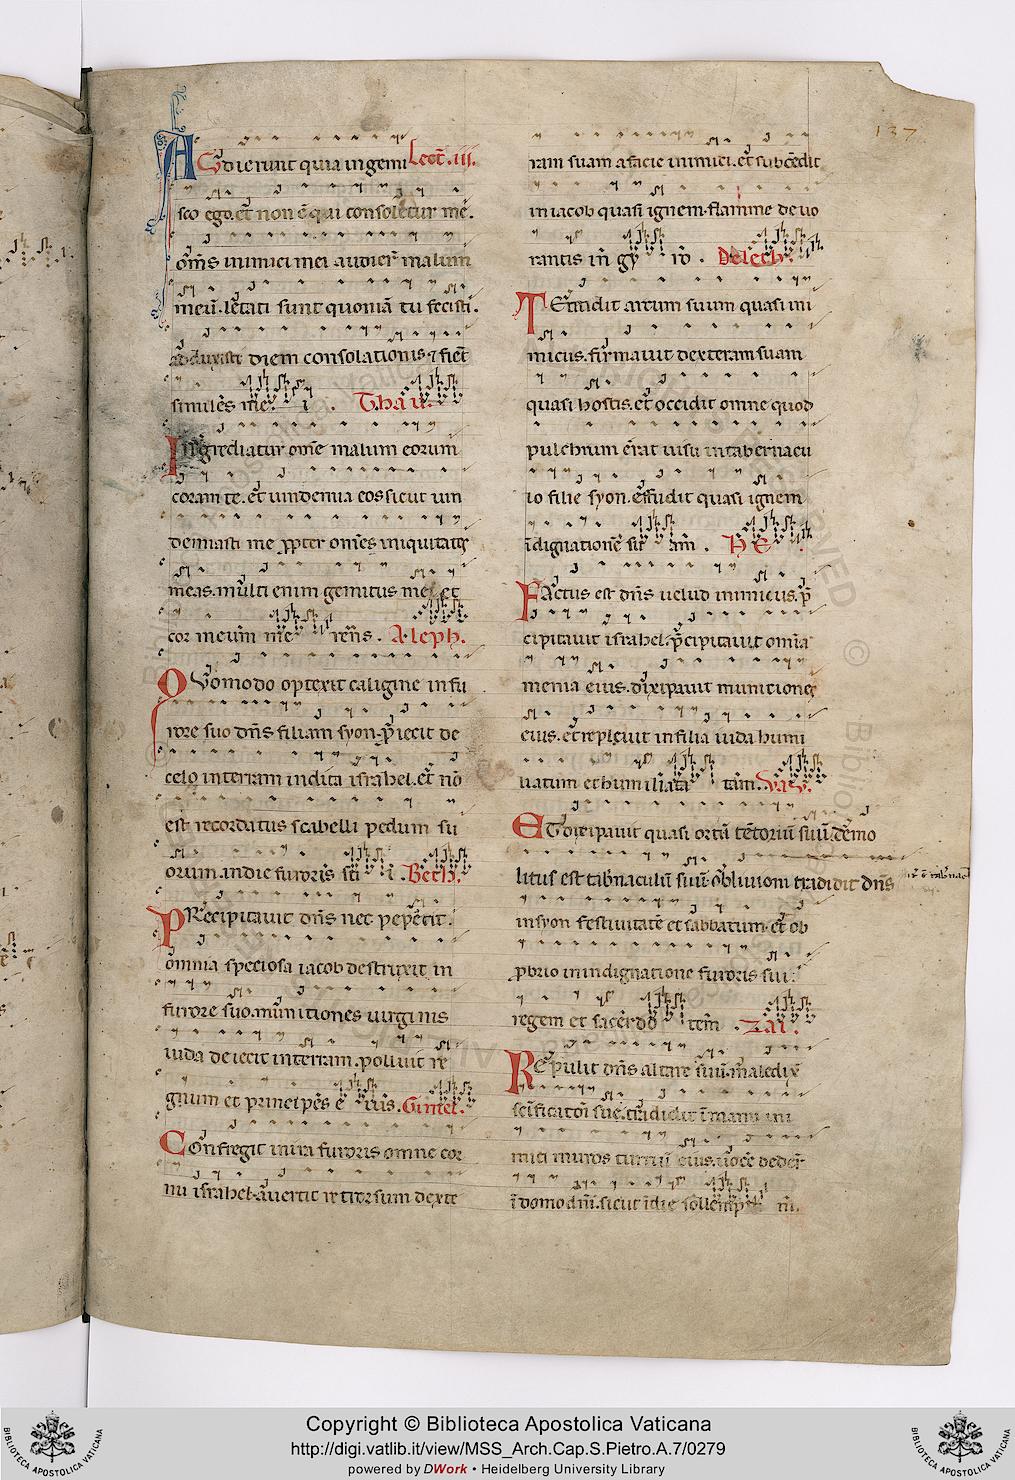 137
AUdierunt quia ingemi Lect. iii.
sco ego. et non ē qui consoletur me.
oms inimici mei audierr malum
meū. letati sunt quoniā tu fecisti.
adduxisti diem consolationis & fient
similes mei. Thau.
INgrediatur ome malum eorum
coram te. et vindemia eos sicut vin
demiasti me ppter omes iniquitates
meas. multi enim gemitus mei. et
cor meum merens. Aleph.
QUomodo optexit caligine in fu
rore suo dns filiam syon. piecit de
celo in terram inclita israhel. et nō
est recordatus scabelli pedum su
orum in die furoris sui. Beth.
PRecipitavit dns nec pepercit.
omnia speciosa iacob destruxit in
furore suo. munitiones virginis
iuda deiecit in terram. polluit re
gnum et principes eius. Gimel.
COnfregit in ira furoris omne cor
nu israhel. avertit retrorsum dexte
ram suam a facie inimici. et succedit
in iacob quasi ignem flamme devo
rantis in gyro. Deleth.
TEtendit arcum suum quasi ini
micus. firmavit dexteram suam
quasi hostis. et occidit omne quod
pulchrum erat visu in tabernacu
lo filie syon. effudit quasi ignem
idignationē suam. HE.
FActus est dns velud inimicus. p
cipitavit israhel. pcipitavit omia
menia eius. dixipavit munitiones
eius. et replevit in filia iuda humi
liatum et humiliatam. Vav.
ET dixipavit quasi ortū tētoriū suū. demo
litus est tabnaculū suū. oblivioni tradidit dns
in syon festivitatē et sabbatum. et ob
pbrio in indignatione furoris sui.
regem et sacerdotem. Zai.
REpulit dns altare suū. maledix
scificatōi sue. tradidit ī manu ini
mici muros turriū eius. vocē dedert
ī domo dni. sicut ī die sollempni.
Copyright © Biblioteca Apostolica Vaticana
http://digi.vatlib.it/view/MSS_Arch.Cap.S.Pietro.A.7/0279
powered by DWork • Heidelberg University Library
BIBLIOTECA APOSTOLICA VATICANA
BIBLIOTECA APOSTOLICA VATICANA